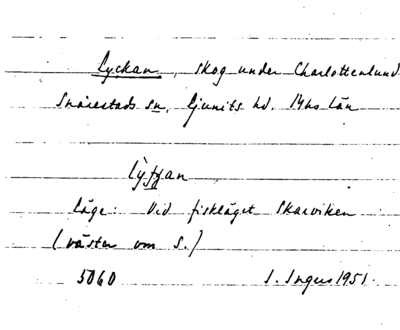 Lyckan, skog under Charlottenlund
Snårestads sn, Ljunits hd. Mhs län
lýkkan
läge: Vid fiskläget Skarviken
(väster om S.)
5060 I. Ingers 1951.